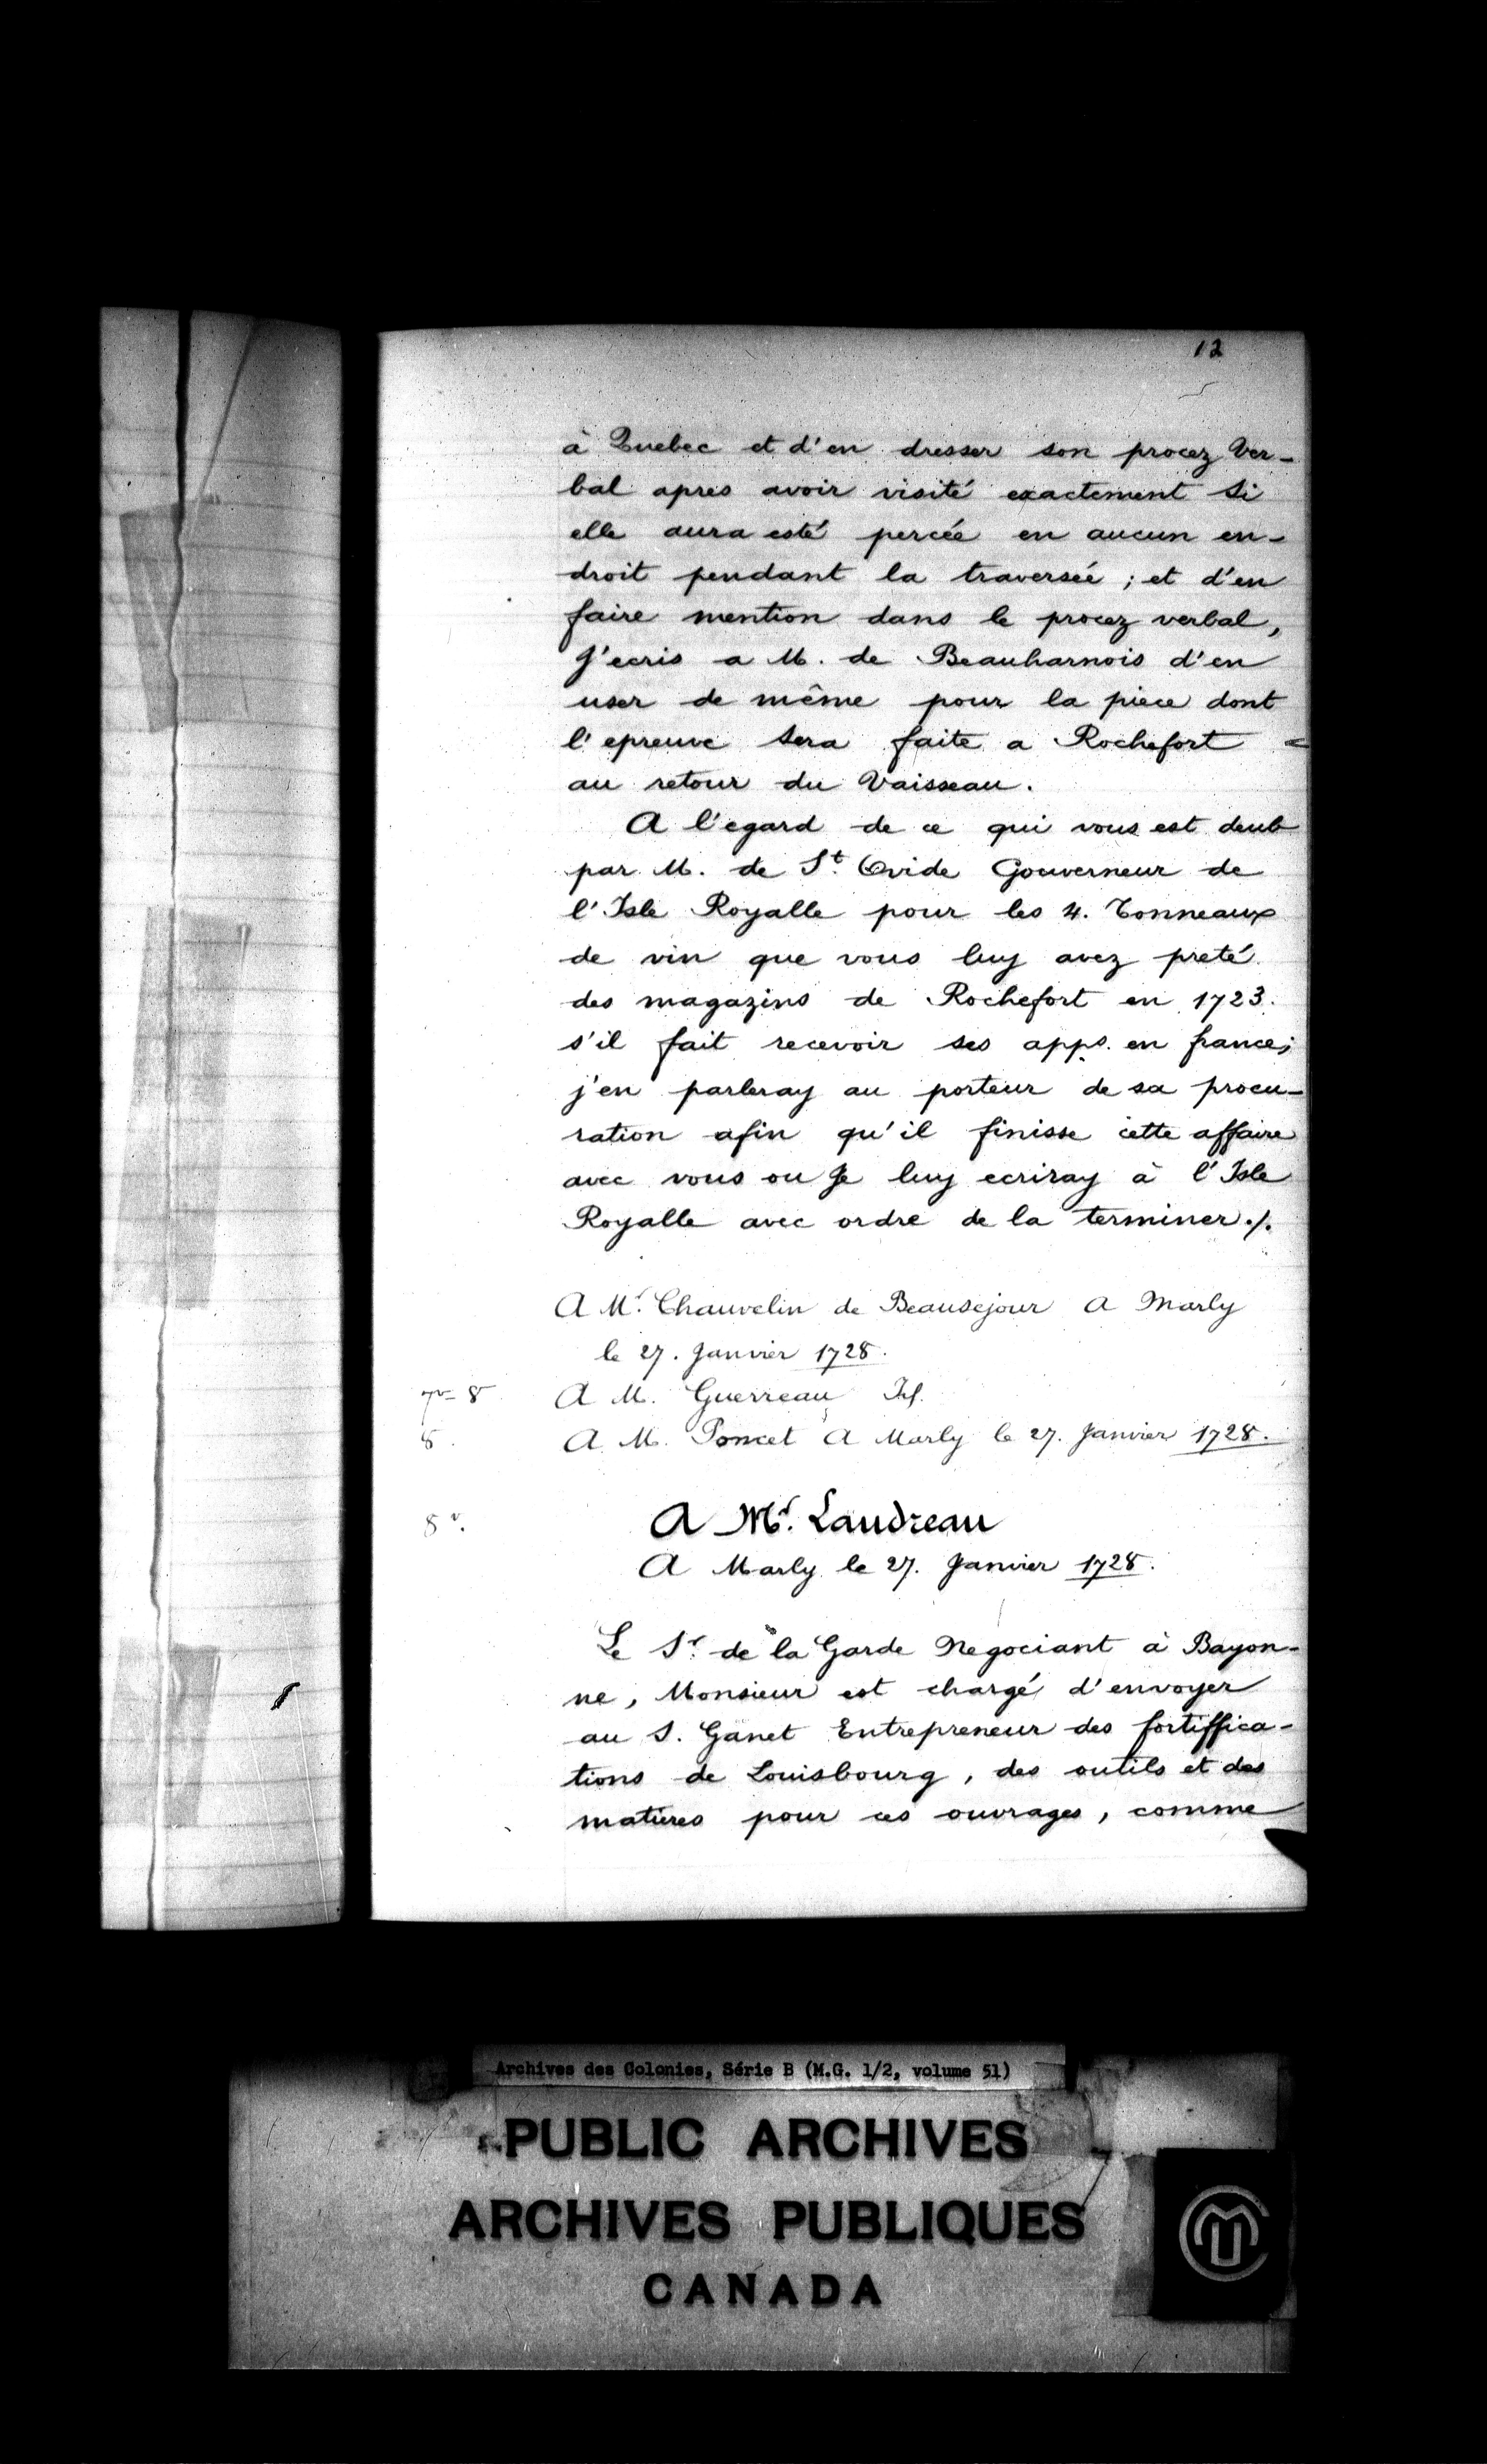 12
à Quebec et d'en dresser son procez Ver-
bal apres avoir visité exactement Si
elle aura esté percée en aucun en-
droit pendant la traversée ; et d'en
faire mention dans le procez verbal,
J'ecris a M. de Beauharnois d'en
user de même pour la piece dont
l'epreuve Sera faite a Rochefort
au retour du Vaisseau.
A l'egard de ce qui vous est deub
par M. de St. Ovide Gouverneur de
l'Isle Royalle pour les 4. Tonneaux
de vin que vous luy avez preté
des magazins de Rochefort en 1723.
s'il fait recevoir ses apps. en france;
j'en parleray au porteur de sa procu-
ration afin qu'il finisse cette affaire
avec vous ou Je luy ecriray à l'Isle
Royalle avec ordre de la terminer ./.
A Mr. Chauvelin de Beausejour A Marly
le 27. Janvier 1728.
8 A M. Guerreau
8. A M. Poncet A Marly le 27. Janvier 1728.
8 v. A Mr. Laudreau
A Marly le 27. Janvier 1728.
Le Sr. de la Garde Negociant à Bayon-
ne, Monsieur est chargé d'envoyer
au S. Ganet Entrepreneur des fortiffica-
tions de Louisbourg, des outils et des
matieres pour ces ouvrages, comme
Archives des Colonies, Série B (M.G. 1/2, volume 51)
PUBLIC ARCHIVES
ARCHIVES PUBLIQUES
CANADA